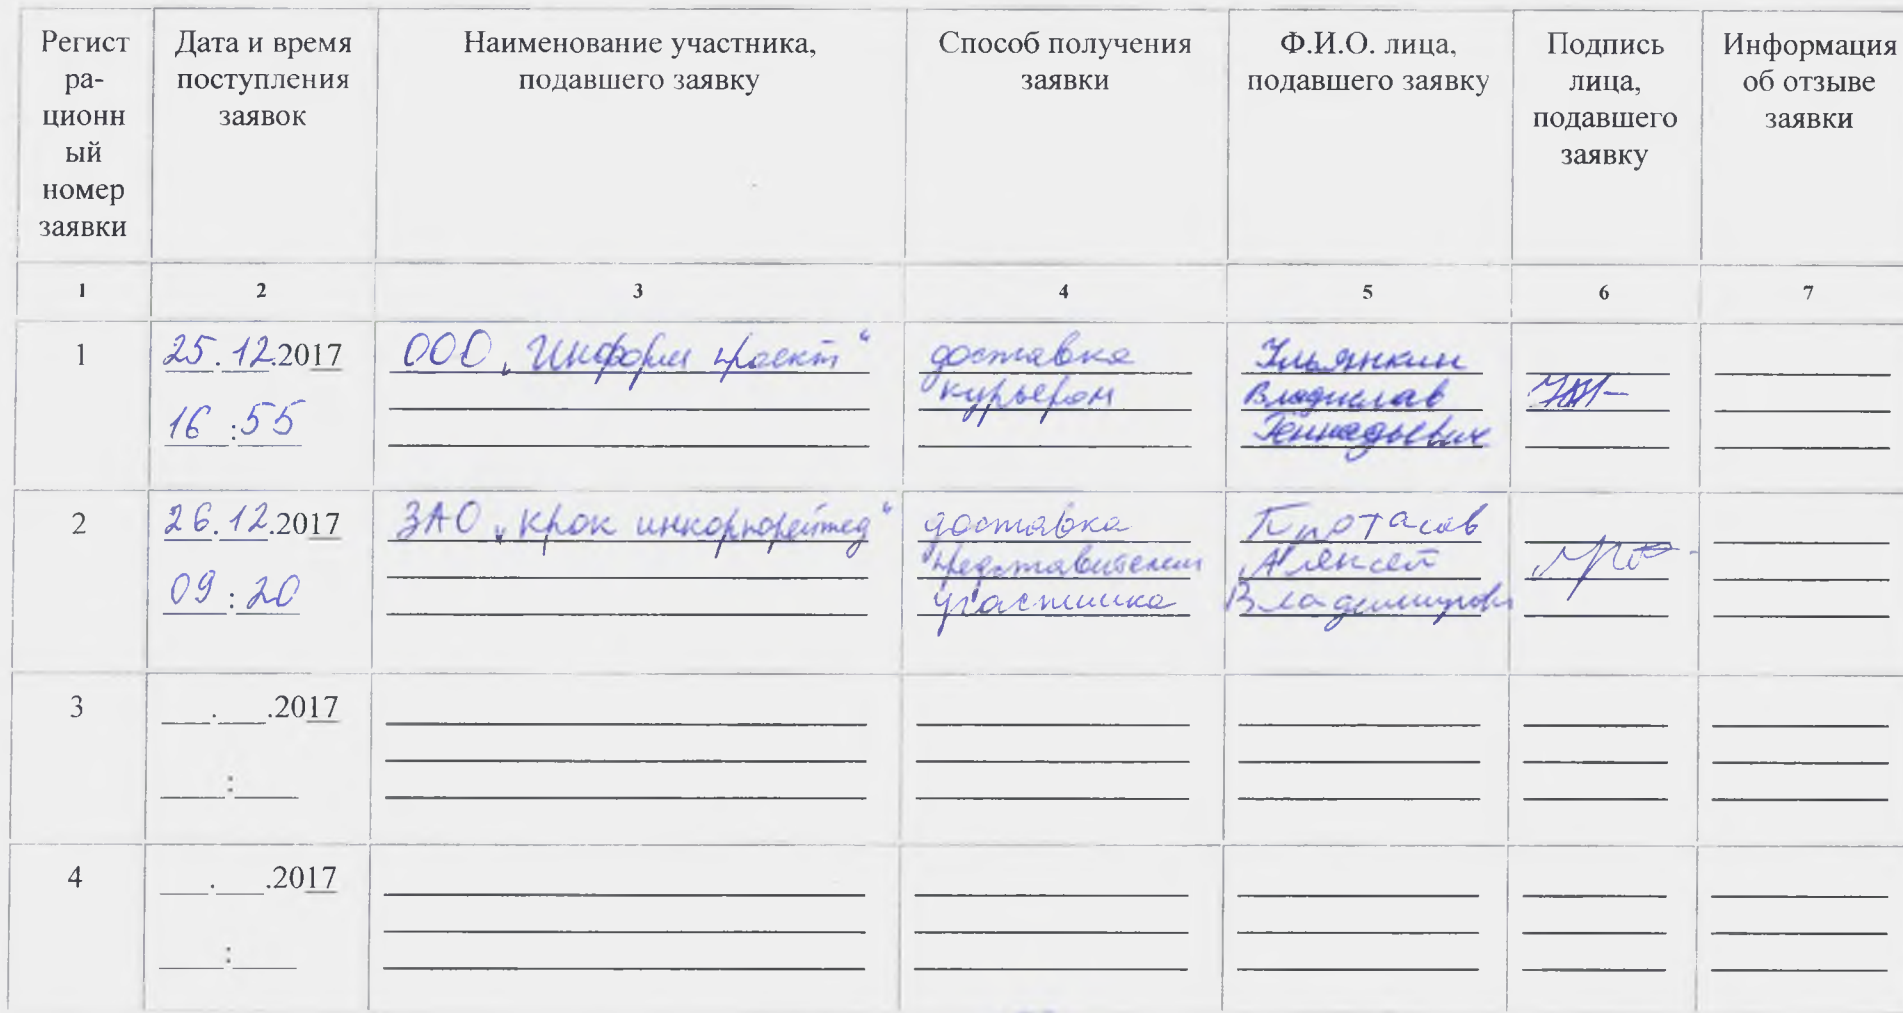 Регист
ра-
ционн
ый
номер
заявки
Дата и время
поступления
заявок
Наименование участника,
подавшего заявку
Способ получения
заявки
Ф.И.О. лица,
подавшего заявку
Подпись
лица,
подавшего
заявку
Информация
об отзыве
заявки
1
2
3
4
5
6
7
1
25.12.2017
16:55
ООО „Информ проект“
доставка
курьером
Ульянкин
Владислав
Геннадьевич
2
26.12.2017
09:20
ЗАО „Крок инкорпорейтед“
доставка
представителем
участника
Протасов
Алексей
Владимирови
3
__.__.2017
__:__
4
__.__.2017
__:__